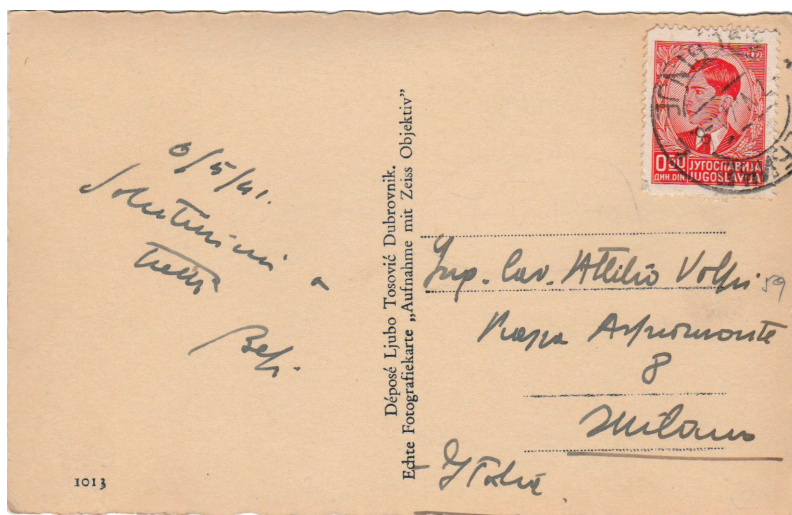 6/5/41.
Saluti
a
tutti
Déposé Ljubo Tosović Dubrovnik.
Echte Fotografiekarte „Aufnahme mit Zeiss Objektiv”
0.50
ЈУГОСЛАВИЈА
ДИН. DIN.
JUGOSLAVIJA
Ing. Cav. Attilio Volpi
59
Aspromonte
8
Milano
Italia
1013